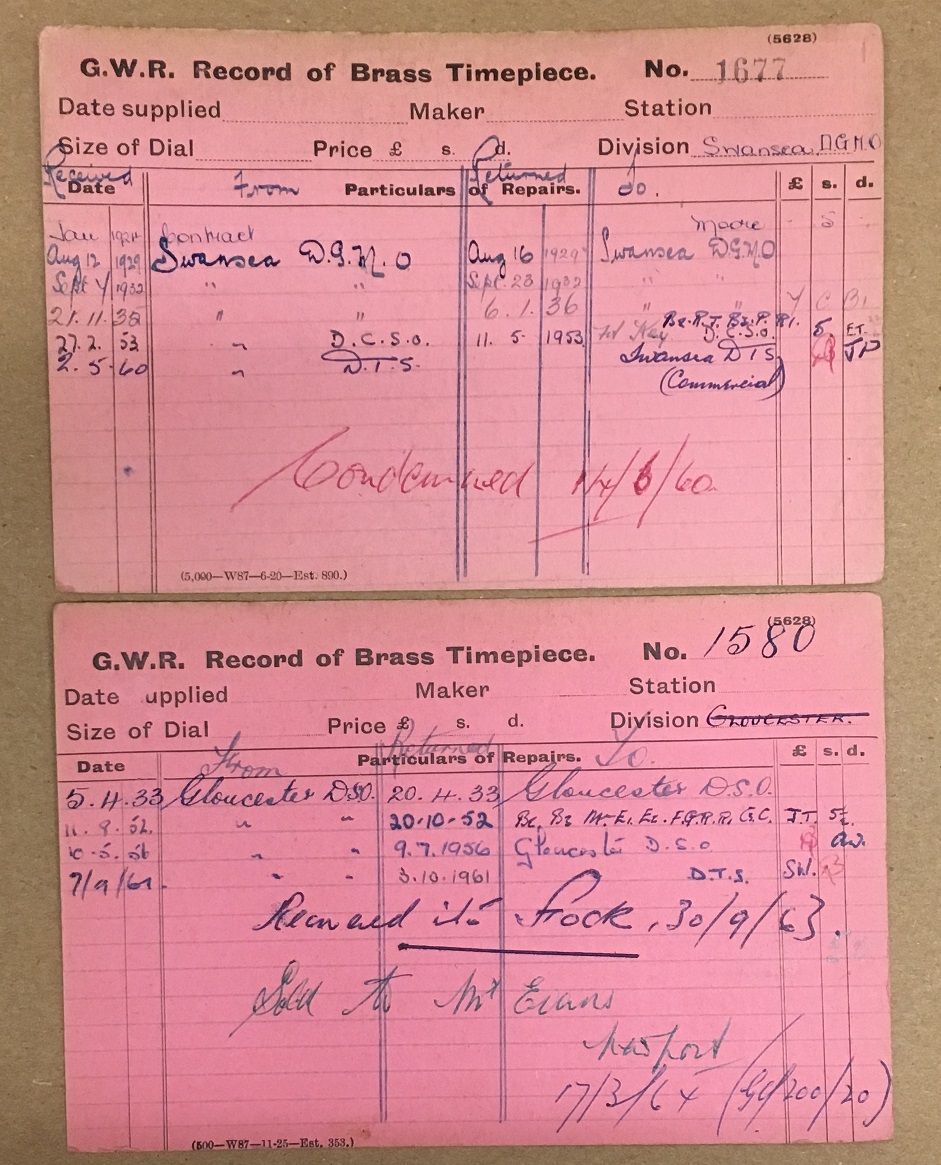 (5628)
G.W.R. Record of Brass Timepiece. No. 1677
Date supplied Maker Station
Size of Dial Price £ s. d. Division Swansea, D.G.M.O
Received Returned
Date From Particulars of Repairs. To. £ s. d.
Jan Contract Moore 5
Aug 12 1929 Swansea D.G.M.O Aug 16 1929 Swansea D.G.M.O
Sept 1932 " " Sept. 23 1932 " "
21.11.35 " " 6.1.36 " "
27.2.53 " D.C.S.O. 11.5.1953 D.C.S.O. 5. F.T.
2.5.60 " D.T.S. Swansea D T S JP
(Commercial)
Condemned 14/6/60
(5,000—W87—6-20—Est. 890.)
(5628)
G.W.R. Record of Brass Timepiece. No. 1580
Date upplied Maker Station
Size of Dial Price £ s. d. Division GLOUCESTER.
From Returned To.
Date Particulars of Repairs. £ s. d.
5.4.33 Gloucester D.S.O. 20.4.33 Gloucester D.S.O.
11.9.52. " " 20-10-52 J.T.
10-5.56 " " 9.7.1956 Gloucester D.S.O
7/9/61. " " 3.10.1961 D.T.S.
Returned to Stock, 30/9/63.
Sold to Mr Evans
Newport
17/3/64 (G9/200/20)
(500—W87—11-25—Est. 353.)